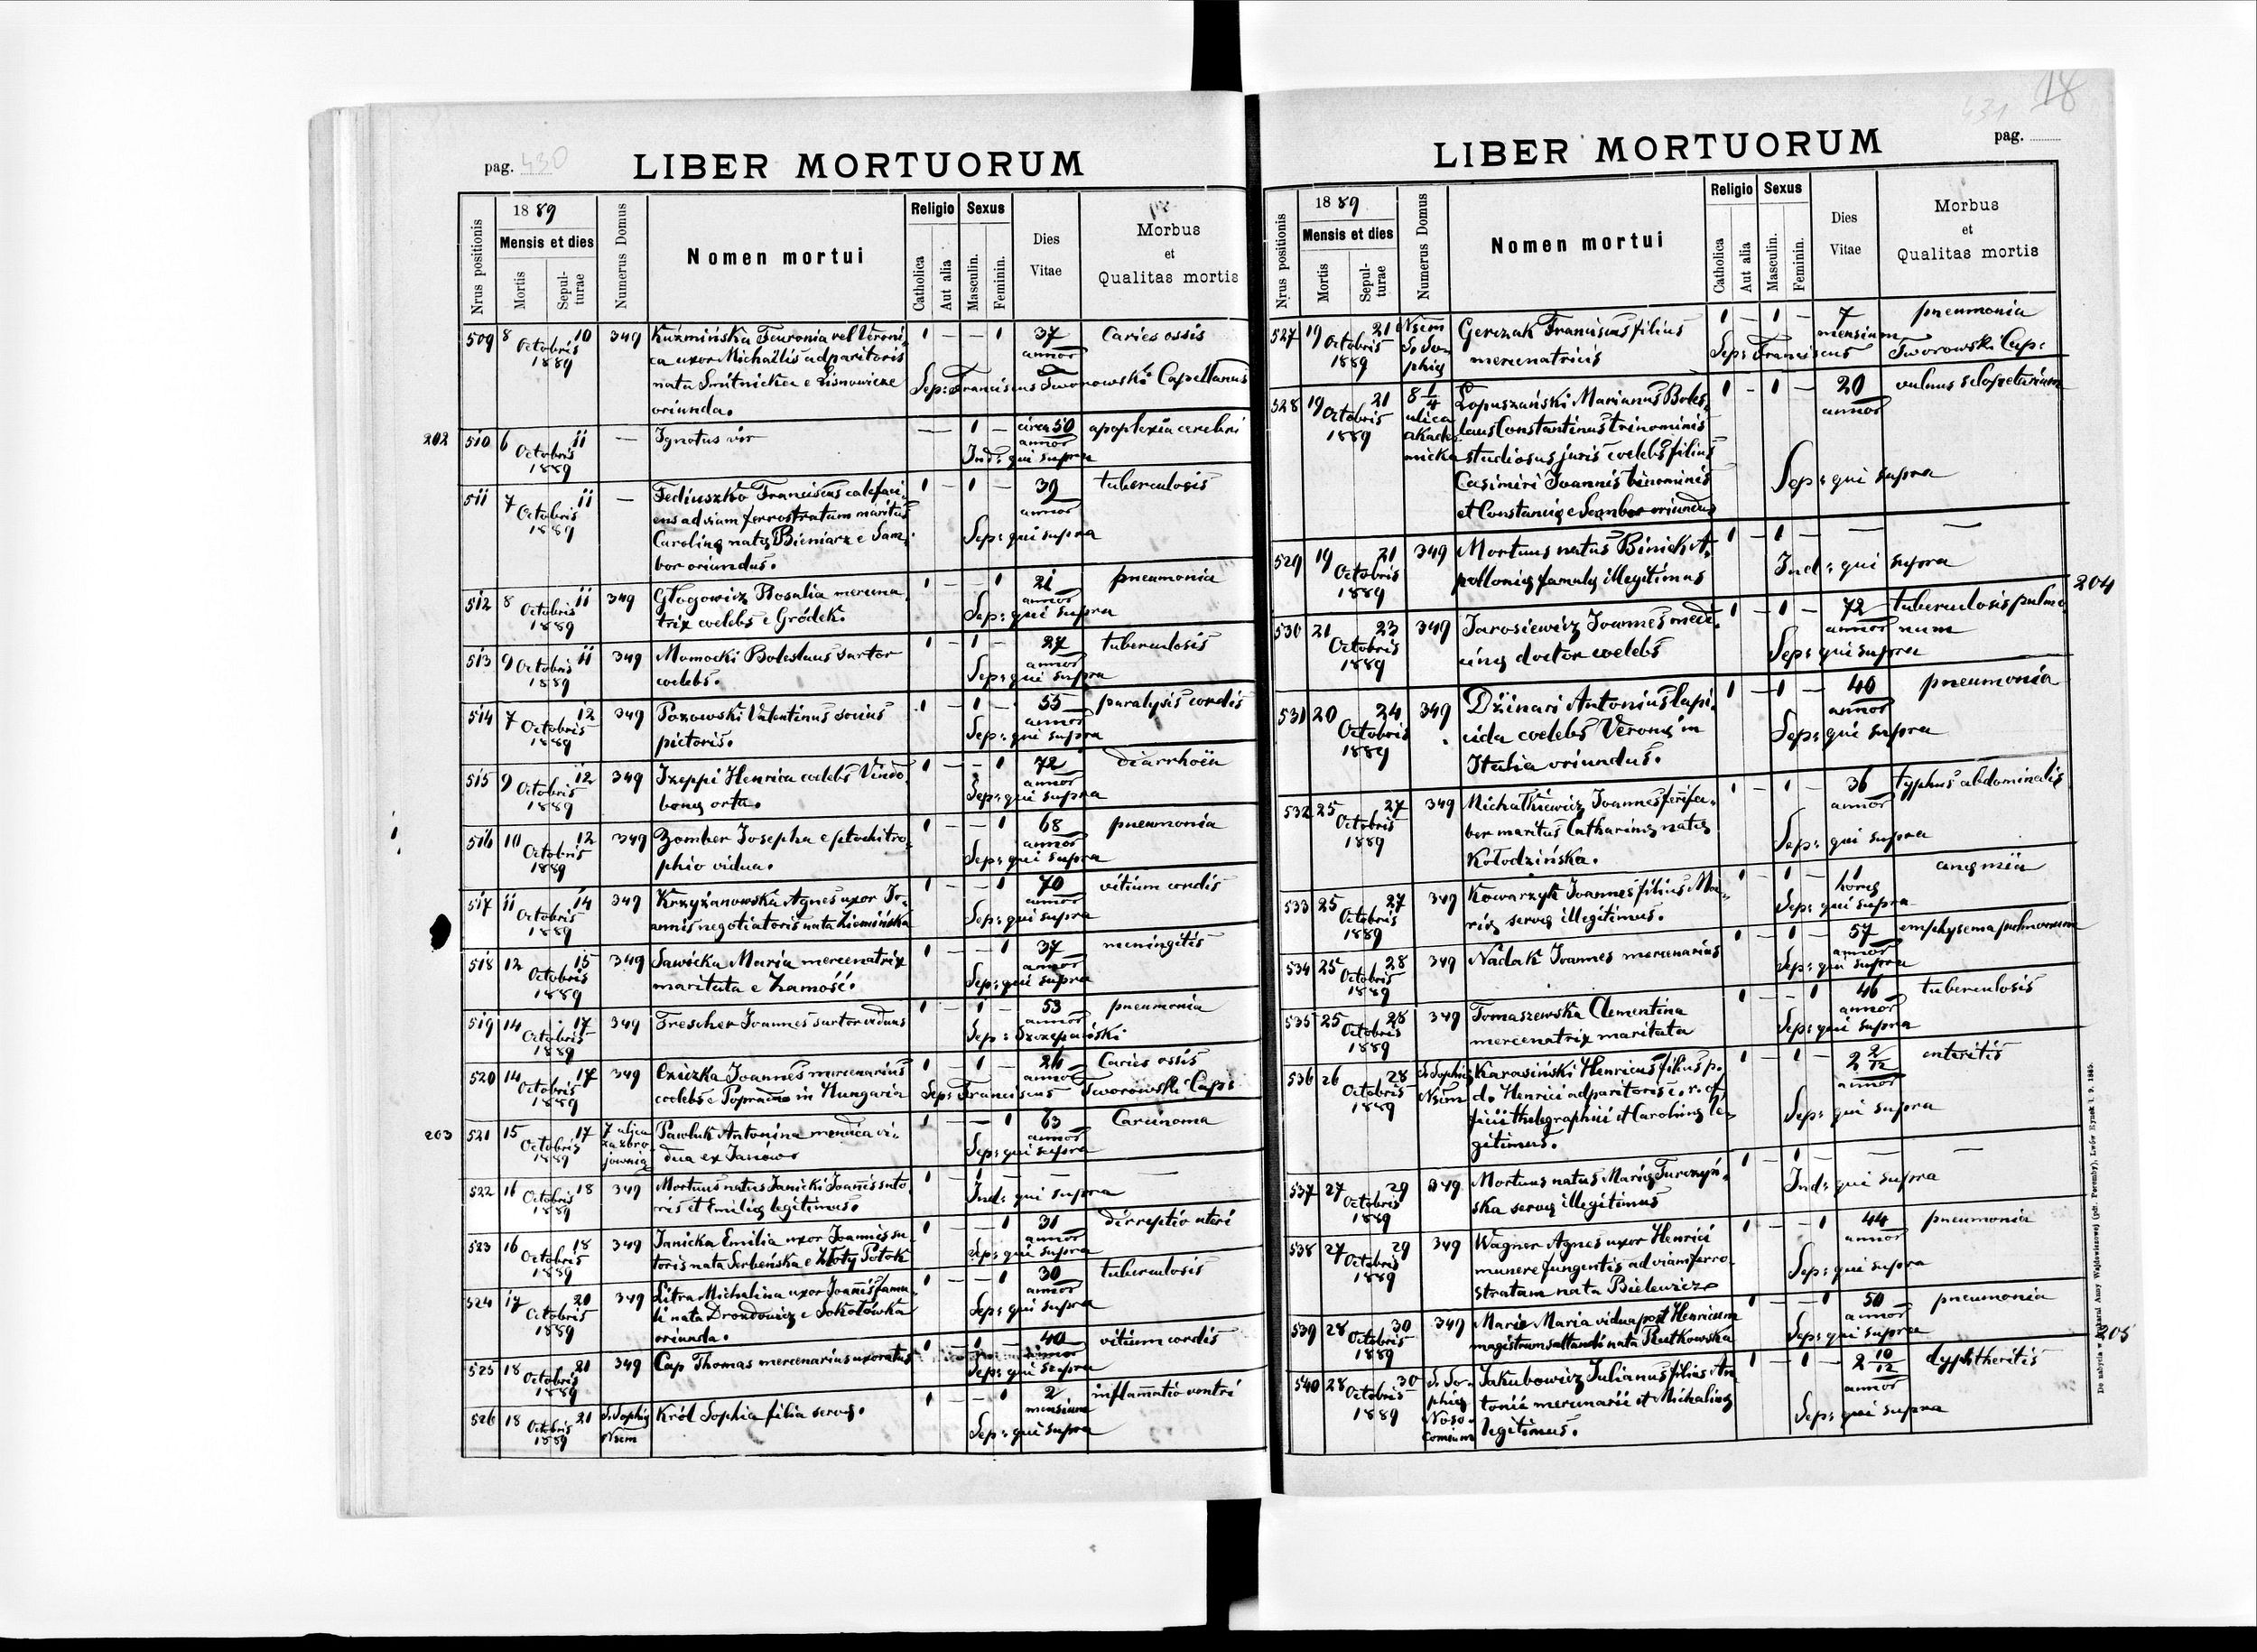 pag. 430
LIBER MORTUORUM
Nrus positionis
1889
Mensis et dies
Mortis
Sepul-
turae
Numerus Domus
Nomen mortui
Religio
Catholica
Aut alia
Sexus
Masculin.
Feminin.
Dies
Vitae
Morbus
et
Qualitas mortis
509 8 10 349 Kuźmińska Feuronia vel Veroni- 1 — — 1 37 Caries ossis
Octobris ca uxor Michaëlis adparitoris annor
1889 nata Smitnicka e Lisnowicze Sep: Franciscus Tworowski Capellanus
oriunda.
202 510 6 11 — Ignotus vir — 1 — circa 50 apoplexia cerebri
Octobris annor
1889 Ind: qui supra
511 7 11 — Fediuszko Franciscus calefaci- 1 — 1 — 39 tuberculosis
Octobris ens ad viam ferrostratam maritus annor
1889 Carolinę natę Bieniarz e Sam- Sep: qui supra
bor oriundus.
512 8 11 349 Głogowicz Rosalia mercena- 1 — — 1 21 pneumonia
Octobris trix coelebs e Gródek. annor
1889 Sep: qui supra
513 9 11 349 Momocki Boleslaus sartor 1 — 1 — 27 tuberculosis
Octobris coelebs. annor
1889 Sep: qui supra
514 7 12 349 Pozowski Valentinus socius 1 — 1 — 55 paralysis cordis
Octobris pictoris. annor
1889 Sep: qui supra
515 9 12 349 Izeppi Henrica coelebs Vindo- 1 — — 1 72 diarrhoëa
Octobris bonę orta. annor
1889 Sep: qui supra
516 10 12 349 Zomber Josepha e ptochitro- 1 — — 1 68 pneumonia
Octobris phio vidua. annor
1889 Sep: qui supra
517 11 14 349 Krzyżanowska Agnes uxor Jo- 1 — — 1 70 vitium cordis
Octobris annis negotiatoris nata Ziemińska annor
1889 Sep: qui supra
518 12 15 349 Sawicka Maria mercenatrix 1 — — 1 37 meningitis
Octobris maritata e Zamość. annor
1889 Sep: qui supra
519 14 17 349 Trescher Joannes sartor viduus 1 — 1 — 53 pneumonia
Octobris annor
1889 Sep: Szczepański
520 14 17 349 Cziczka Joannes mercenarius 1 — 1 — 26 Caries ossis
Octobris coelebs e Poprad in Hungaria annor
1889 Sep: Franciscus Tworowski Cap:
203 521 15 17 7 ulica Pawluk Antonina mendica vi- 1 — — 1 63 Carcinoma
Octobris za zbro- dua ex Janów annor
1889 jownią Sep: qui supra
522 16 18 349 Mortuus natus Janicki Joannis suto- 1 — 1 — — —
Octobris ris et Emilię legitimus. Ind: qui supra
1889
523 16 18 349 Janicka Emilia uxor Joannis su- 1 — — 1 31 dirreptio uteri
Octobris toris nata Serbeńska e Złoty Potok annor
1889 Sep: qui supra
524 17 20 349 Litra Michalina uxor Joannis famu- 1 — — 1 30 tuberculosis
Octobris li nata Drozdowicz e Sokołówka annor
1889 oriunda. Sep: qui supra
525 18 21 349 Cap Thomas mercenarius uxoratus 1 — 1 — 40 vitium cordis
Octobris annor
1889 Sep: qui supra
526 18 21 S. Sophię Król Sophia filia servę. 1 — — 1 2 inflamatio ventri
Octobris Nsem mensium
1889 Sep: qui supra
18
431
pag.
LIBER MORTUORUM
Nrus positionis
1889
Mensis et dies
Mortis
Sepul-
turae
Numerus Domus
Nomen mortui
Religio
Catholica
Aut alia
Sexus
Masculin.
Feminin.
Dies
Vitae
Morbus
et
Qualitas mortis
527 19 21 Nsem Gerczak Franciscus filius 1 — 1 — 7 pneumonia
Octobris S. So- mercenatricis mensium
1889 phię Sep: Franciscus Tworowski Cap:
528 19 21 8 1/4 Łopuszański Marianus Boles- 1 — 1 — 20 vulnus sclopetarium
Octobris ulica laus Constantinus trinominis annor
1889 akade- studiosus juris coelebs filius
micka Casimiri Joannis binominis Sep: qui supra
et Constancię e Sambor oriundus
529 19 21 349 Mortuus natus Binick A- 1 — 1 — — —
Octobris pollonię famulę illegitimus Ind: qui supra
1889
204 530 21 23 349 Jarosiewicz Joannes medi- 1 — 1 — 72 tuberculosis pulmo-
Octobris cinę doctor coelebs annor num
1889 Sep: qui supra
531 20 24 349 Dżinari Antonius lapi- 1 — 1 — 40 pneumonia
Octobris cida coelebs Veronę in annor
1889 Italia oriundus. Sep: qui supra
532 25 27 349 Michałkiewicz Joannes ferifa- 1 — 1 — 36 typhus abdominalis
Octobris ber maritus Catharinę natę annor
1889 Kołodzińska. Sep: qui supra
533 25 27 349 Kowarzyk Joannes filius Ma- 1 — 1 — 1 anęmia
Octobris rię servę illegitimus. horę
1889 Sep: qui supra
534 25 28 349 Nadak Joannes mercenarius 1 — 1 — 57 emphysema pulmonum
Octobris annor
1889 Sep: qui supra
535 25 28 349 Tomaszewska Clementina 1 — — 1 46 tuberculosis
Octobris mercenatrix maritata annor
1889 Sep: qui supra
536 26 28 S. Sophię Karasiński Henricus filius p. 1 — 1 — 2 2/12 enteritis
Octobris Nsem d. Henrici adparitoris c. r. of- annor
1889 ficii thelegraphici et Carolinę le- Sep: qui supra
gitimus.
537 27 29 349 Mortuus natus Marię Turczyń- 1 — 1 — — —
Octobris ska servę illegitimus Ind: qui supra
1889
538 27 29 349 Wagner Agnes uxor Henrici 1 — — 1 44 pneumonia
Octobris munere fungentis ad viam ferro- annor
1889 stratam nata Bielewicz Sep: qui supra
539 28 30 349 Marie Maria vidua post Henricum 1 — — 1 50 pneumonia
Octobris magistrum saltandi nata Rutkowska annor
1889 Sep: qui supra
205 540 28 30 S. So- Jakubowicz Julianus filius An- 1 — 1 — 2 10/12 dyphtheritis
Octobris phię tonii mercenarii et Michalinę annor
1889 Noso- legitimus. Sep: qui supra
comium